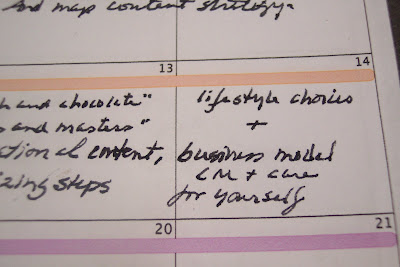 And map content strategy.
13
14
h and chocolate"
s and masters"
ational content,
izing steps
lifestyle choices
+
business model
CM + care
for yourself
20
21